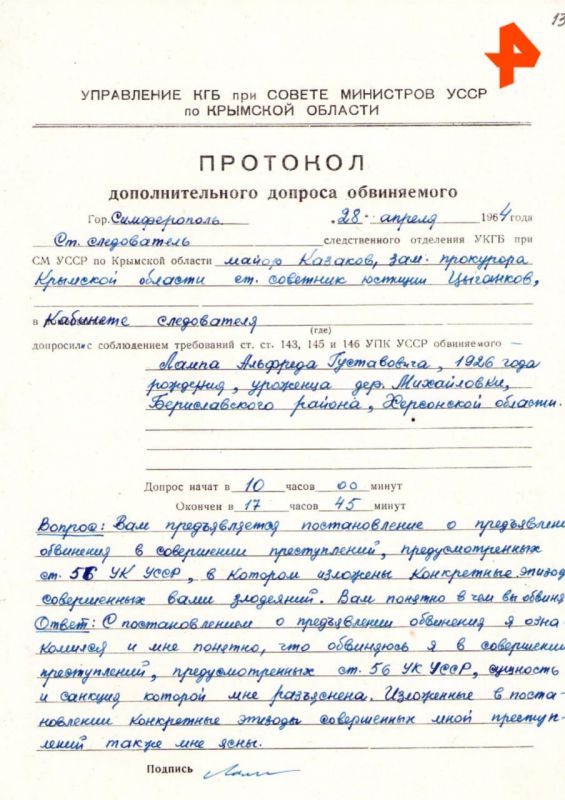 13
УПРАВЛЕНИЕ КГБ при СОВЕТЕ МИНИСТРОВ УССР
по КРЫМСКОЙ ОБЛАСТИ
ПРОТОКОЛ
дополнительного допроса обвиняемого
Гор. Симферополь „28" апреля 1964 года
Ст. следователь следственного отделения УКГБ при
СМ УССР по Крымской области майор Казаков, зам. прокурора
Крымской области ст. советник юстиции Цыганков,
в Кабинете следователя
(где)
допросили с соблюдением требований ст. ст. 143, 145 и 146 УПК УССР обвиняемого —
Лампа Альфреда Густавовича, 1926 года
рождения, уроженца дер. Михайловки,
Бериславского района, Херсонской области.
Допрос начат в 10 часов 00 минут
Окончен в 17 часов 45 минут
Вопрос: Вам предъявляется постановление о предъявлени
обвинения в совершении преступлений, предусмотренных
ст. 56 УК УССР, в котором изложены конкретные эпизод
совершенных вами злодеяний. Вам понятно в чем вы обвиня
Ответ: С постановлением о предъявлении обвинения я озна-
комился и мне понятно, что обвиняюсь я в совершении
преступлений, предусмотренных ст. 56 УК УССР, сущность
и санкция которой мне разъяснена. Изложенные в поста-
новлении конкретные эпизоды совершенных мной преступ-
лений также мне ясны.
Подпись